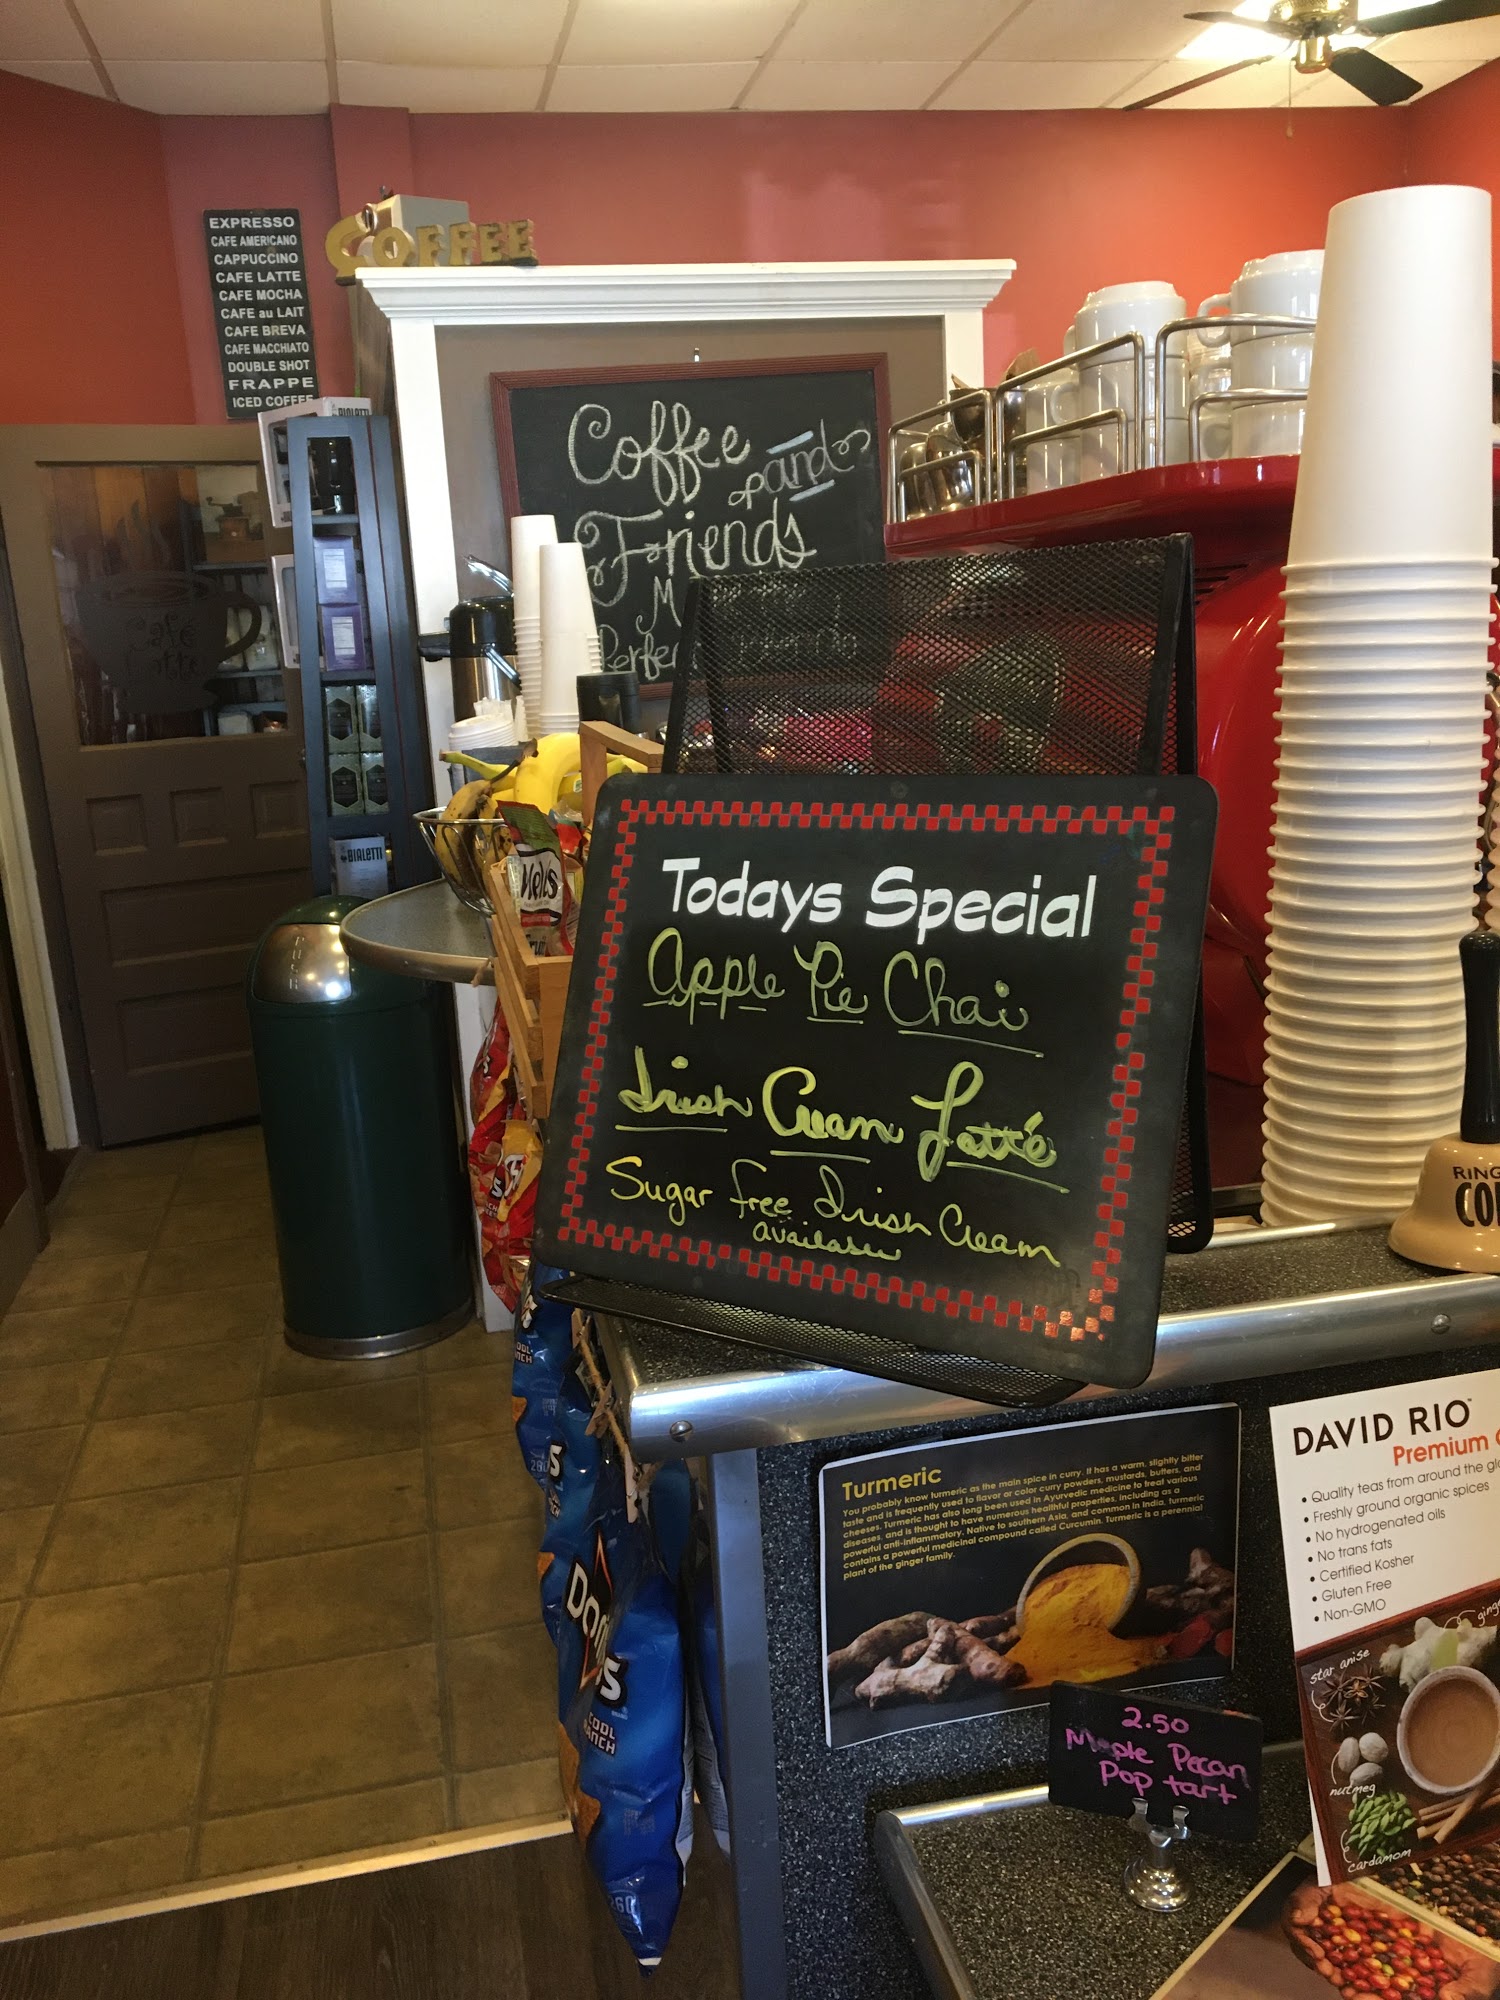 EXPRESSO
CAFE AMERICANO
CAPPUCCINO
CAFE LATTE
CAFE MOCHA
CAFE au LAIT
CAFE BREVA
CAFE MACCHIATO
DOUBLE SHOT
FRAPPE
ICED COFFEE
COFFEE
BIALETTI
Coffee
and
Friends
Cafe
BIALETTI
PUSH
Todays Special
Apple Pie Chai
Irish Cream Latté
Sugar Free Irish Cream
available
RING
Turmeric
You probably know turmeric as the main spice in curry. It has a warm, slightly bitter
taste and is frequently used to flavor or color curry powders, mustards, butters, and
cheeses. Turmeric has also long been used in Ayurvedic medicine to treat various
diseases, and is thought to have numerous healthful properties, including as a
powerful anti-inflammatory. Native to southern Asia, and common in India, turmeric
contains a powerful medicinal compound called Curcumin. Turmeric is a perennial
plant of the ginger family.
DAVID RIO™
Premium
• Quality teas from around the
• Freshly ground organic spices
• No hydrogenated oils
• No trans fats
• Certified Kosher
• Gluten Free
• Non-GMO
star anise
nutmeg
cardamom
2.50
Maple Pecan
Pop tart
COOL
RANCH
260